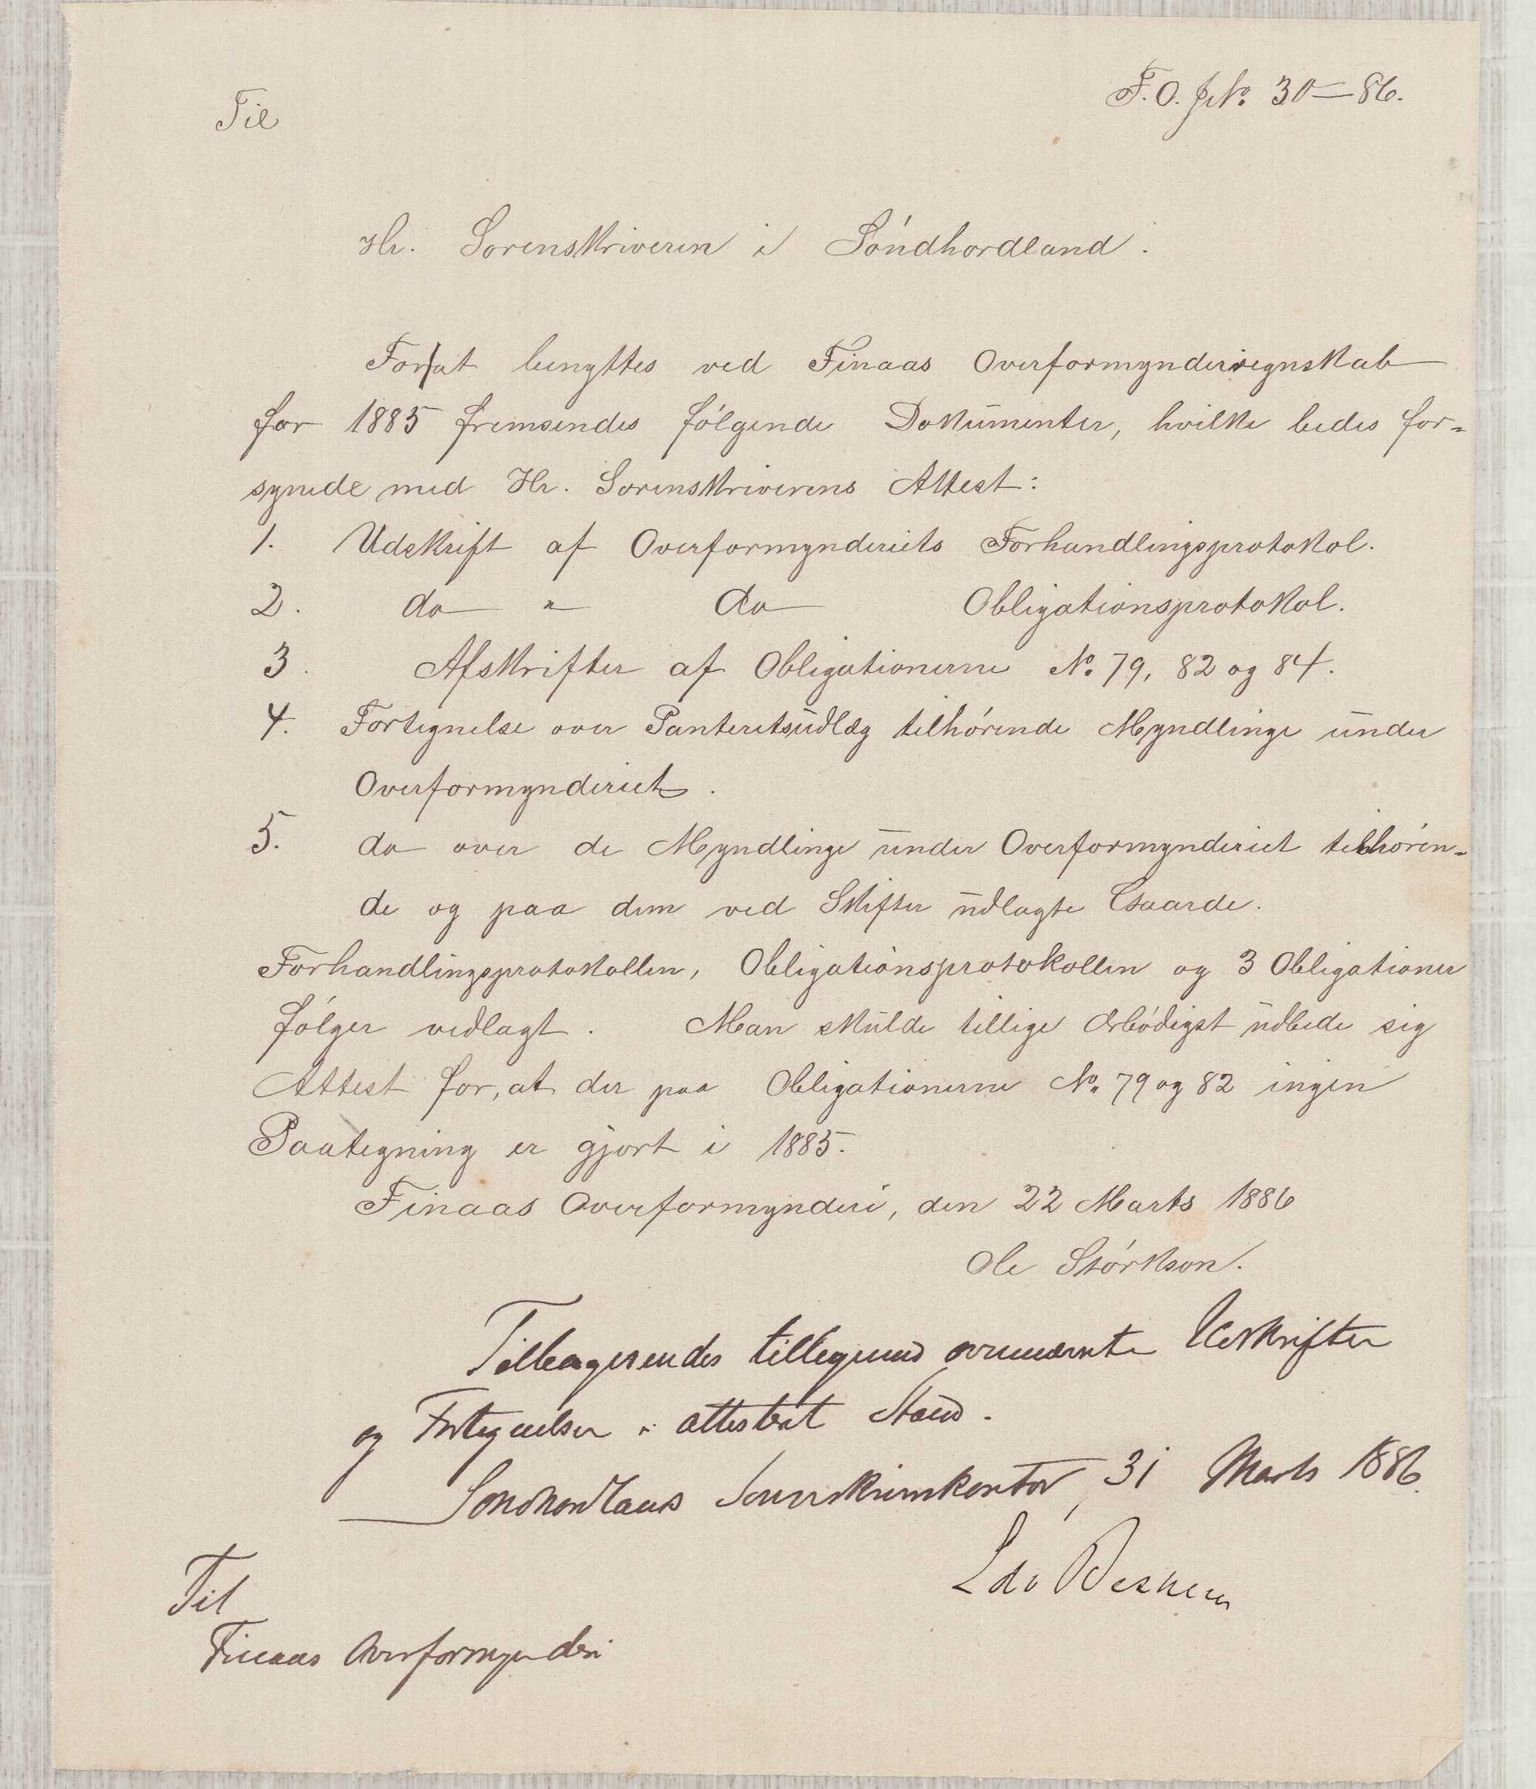 F.O. J.No. 30 - 86.
Til
Hr. Sorenskriveren i Söndhordland.
For at benyttes ved Finaas Overformynderiregnskab
for 1885 fremsendes fólgende Dokumenter, hvilke bedes for=
synede med Hr. Sorenskriverens Attest:
1. Udskrift af Overformynderiets Forhandlingsprotokol.
2. do " do Obligationsprotokol.
3. Afskrifter af Obligationerne No. 79, 82 og 84.
4. Fortegnelse over Panteretsudlæg tilhórende Myndlinge under
Overformynderiet.
5. do over de Myndlinge under Overformynderiet tilhóren=
de og paa dem ved Skifter udlagte Gaarde.
Forhandlingsprotokollen, Obligationsprotokollen og 3 Obligationer
fólger vedlagt. Man skulde tillige ærbódigst udbede sig
Attest for, at der paa Obligationerne No. 79 og 82 ingen
Paategning er gjort i 1885.
Finaas Overformynderi, den 22 Marts 1886
Ole Stórkson.
Tilbagesendes tilligemed ovennævnte Udskrifter
og Fortegnelser i attesteret Stand.
Söndhordlands Sorenskriverkontor, 31 Marts 1886.
Til
Finaas Overformynderi